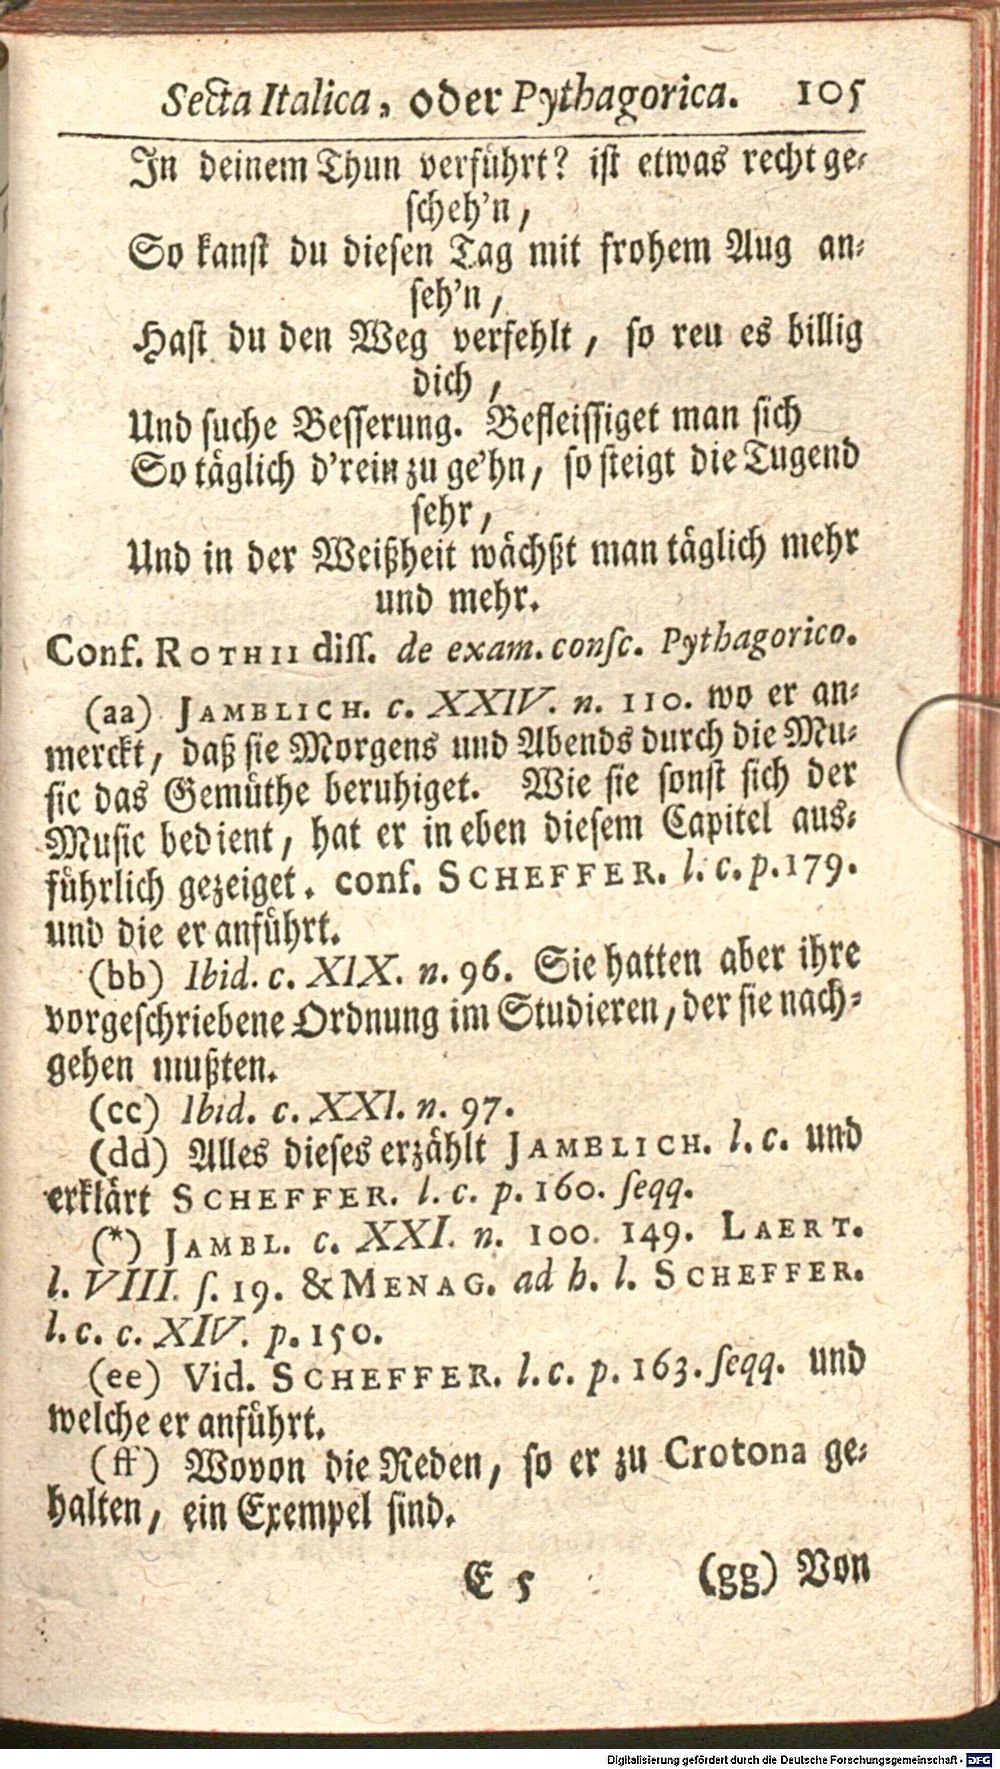 Secta Italica, oder Pythagorica. 105
In deinem Thun verführt? ist etwas recht ge-
scheh'n,
So kanst du diesen Tag mit frohem Aug an-
seh'n,
Hast du den Weg verfehlt, so reu es billig
dich,
Und suche Besserung. Befleissiget man sich
So täglich d'rein zu ge'hn, so steigt die Tugend
sehr,
Und in der Weißheit wächßt man täglich mehr
und mehr.
Conf. ROTHII diss. de exam. consc. Pythagorico.
(aa) JAMBLICH. c. XXIV. n. 110. wo er an-
merckt, daß sie Morgens und Abends durch die Mu-
sic das Gemüthe beruhiget. Wie sie sonst sich der
Music bedient, hat er in eben diesem Capitel aus-
führlich gezeiget. conf. SCHEFFER. l. c. p. 179.
und die er anführt.
(bb) Ibid. c. XIX. n. 96. Sie hatten aber ihre
vorgeschriebene Ordnung im Studieren, der sie nach-
gehen mußten.
(cc) Ibid. c. XXI. n. 97.
(dd) Alles dieses erzählt JAMBLICH. l. c. und
erklärt SCHEFFER. l. c. p. 160. seqq.
(*) JAMBL. c. XXI. n. 100. 149. LAERT.
l. VIII. s. 19. & MENAG. ad h. l. SCHEFFER.
l. c. c. XIV. p. 150.
(ee) Vid. SCHEFFER. l. c. p. 163. seqq. und
welche er anführt.
(ff) Wovon die Reden, so er zu Crotona ge-
halten, ein Exempel sind.
E 5 (gg) Von
Digitalisierung gefördert durch die Deutsche Forschungsgemeinschaft - DFG